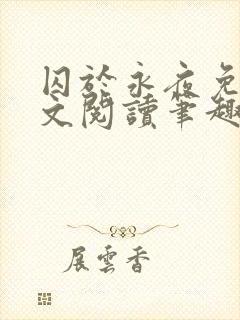 囚於永夜免
文閱讀筆趣
展雲香